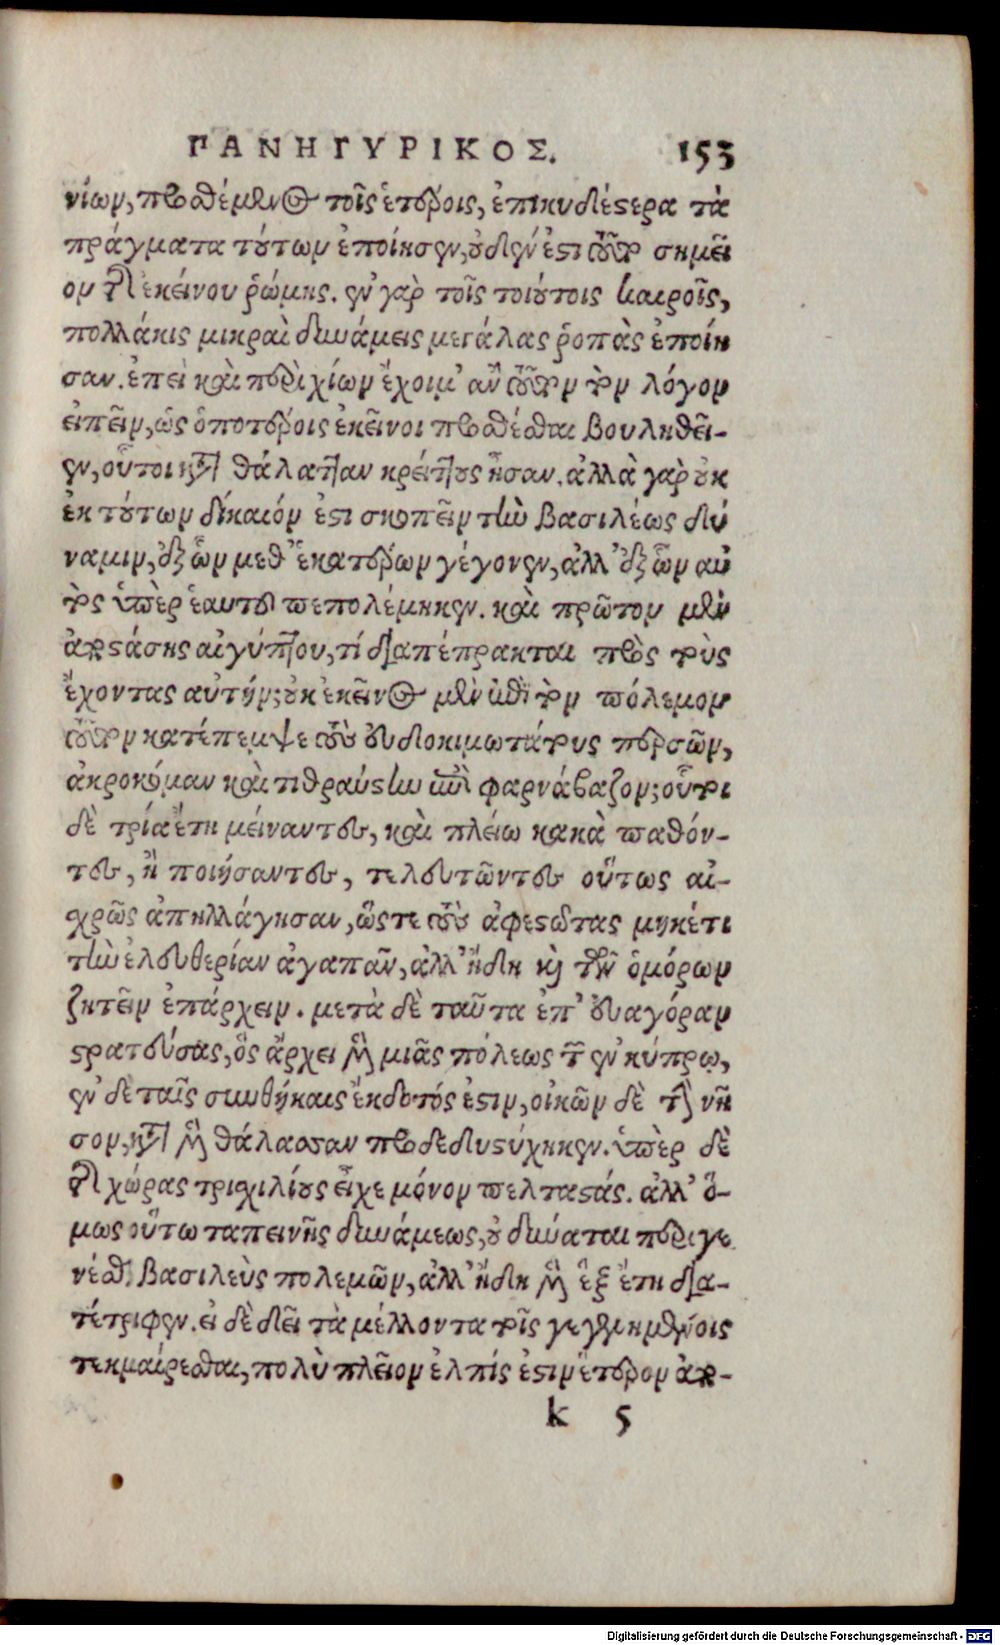 ΠΑΝΗΓΥΡΙΚΟΣ. 153
νίων, προσθέμενος τοῖς ἑτέροις, ἐπικυδέστερα τὰ
πράγματα τούτων ἐποίησεν, οὐδὲν ἐστι τοῦτο σημεῖ
ον τῆς ἐκείνου ῥώμης. ἐν γὰρ τοῖς τοιούτοις καιροῖς,
πολλάκις μικραὶ δυνάμεις μεγάλας ῥοπὰς ἐποίη
σαν. ἐπεὶ καὶ περὶ χίων ἔχοιμ' ἂν τοῦτον τὸν λόγον
εἰπεῖν, ὡς ὁποτέροις ἐκεῖνοι προσθέσθαι βουληθεῖ-
εν, οὗτοι κατὰ θάλατταν κρείττους ἦσαν. ἀλλὰ γὰρ οὐκ
ἐκ τούτων δίκαιόν ἐστι σκοπεῖν τὴν βασιλέως δύ
ναμιν, ἐξ ὧν μεθ' ἑκατέρων γέγονεν, ἀλλ' ἐξ ὧν αὐ
τὸς ὑπὲρ ἑαυτοῦ πεπολέμηκεν. καὶ πρῶτον μὲν
ἀποστάσης αἰγύπτου, τί διαπέπρακται πρὸς τοὺς
ἔχοντας αὐτήν; οὐκ ἐκεῖνος μὲν ἐπὶ τὸν πόλεμον
τοῦτον κατέπεμψε τοὺς εὐδοκιμωτάτους περσῶν,
ἀκροκόμαν καὶ τιθραύστην καὶ φαρνάβαζον; οὗτοι
δὲ τρία ἔτη μείναντες, καὶ πλείω κακὰ παθόν-
τες, ἢ ποιήσαντες, τελευτῶντες οὕτως αἰ-
σχρῶς ἀπηλλάγησαν, ὥστε τοὺς ἀφεστῶτας μηκέτι
τὴν ἐλευθερίαν ἀγαπᾶν, ἀλλ' ἤδη καὶ τῶν ὁμόρων
ζητεῖν ἐπάρχειν. μετὰ δὲ ταῦτα ἐπ' εὐαγόραν
στρατεύσας, ὃς ἄρχει μὲν μιᾶς πόλεως τῶν ἐν κύπρῳ,
ἐν δὲ ταῖς συνθήκαις ἔκδοτός ἐστιν, οἰκῶν δὲ τὴν νῆ
σον, κατὰ μὲν θάλασσαν προδεδυστύχηκεν. ὑπὲρ δὲ
τῆς χώρας τρισχιλίους εἶχε μόνον πελταστάς. ἀλλ' ὅ-
μως οὕτω ταπεινῆς δυνάμεως, οὐ δύναται περιγε
νέσθαι βασιλεὺς πολεμῶν, ἀλλ' ἤδη μὲν ἓξ ἔτη δια-
τέτριφεν. εἰ δὲ δεῖ τὰ μέλλοντα τοῖς γεγενημένοις
τεκμαίρεσθαι, πολὺ πλεῖον ἐλπίς ἐστιν ἕτερον ἀπο-
k 5
Digitalisierung gefördert durch die Deutsche Forschungsgemeinschaft - DFG